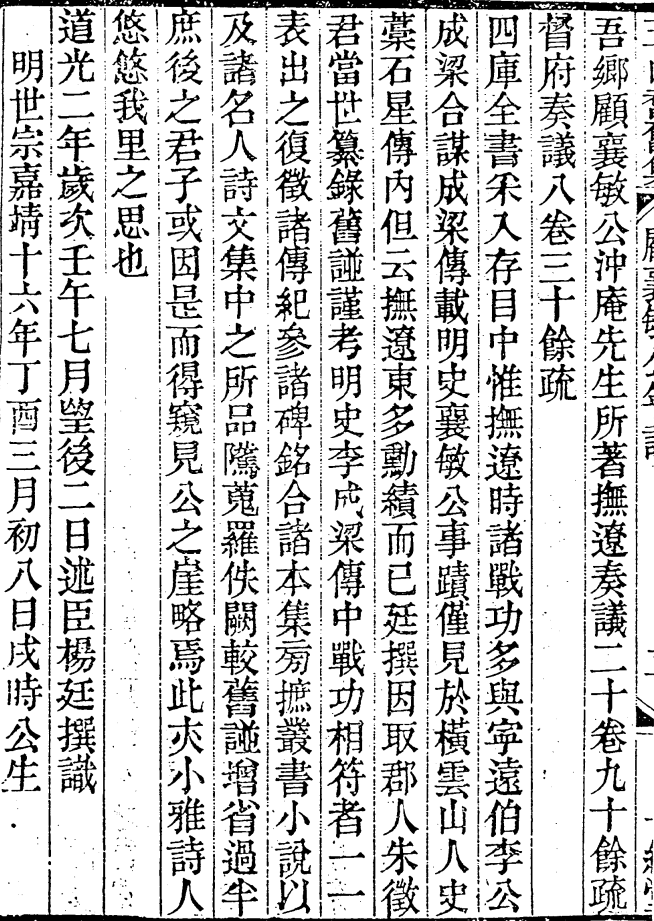 吾鄉顧襄敏公沖庵先生所著撫遼奏議二十卷九十餘疏
督府奏議八卷三十餘疏
四庫全書采入存目中惟撫遼時諸戰功多與寧遠伯李公
成梁合謀成梁傳載明史襄敏公事蹟僅見於橫雲山人史
藁石星傳內但云撫遼東多勳績而已廷撰因取郡人朱徵
君當世纂錄舊譜謹考明史李成梁傳中戰功相符者一一
表出之復徵諸傳紀參諸碑銘合諸本集㫄摭叢書小說以
及諸名人詩文集中之所品隲蒐羅佚闕較舊譜增省過半
庶後之君子或因是而得窺見公之崖略焉此亦小雅詩人
悠悠我里之思也
道光二年歲次壬午七月朢後二日述臣楊廷撰識
明世宗嘉靖十六年丁酉三月初八日戌時公生